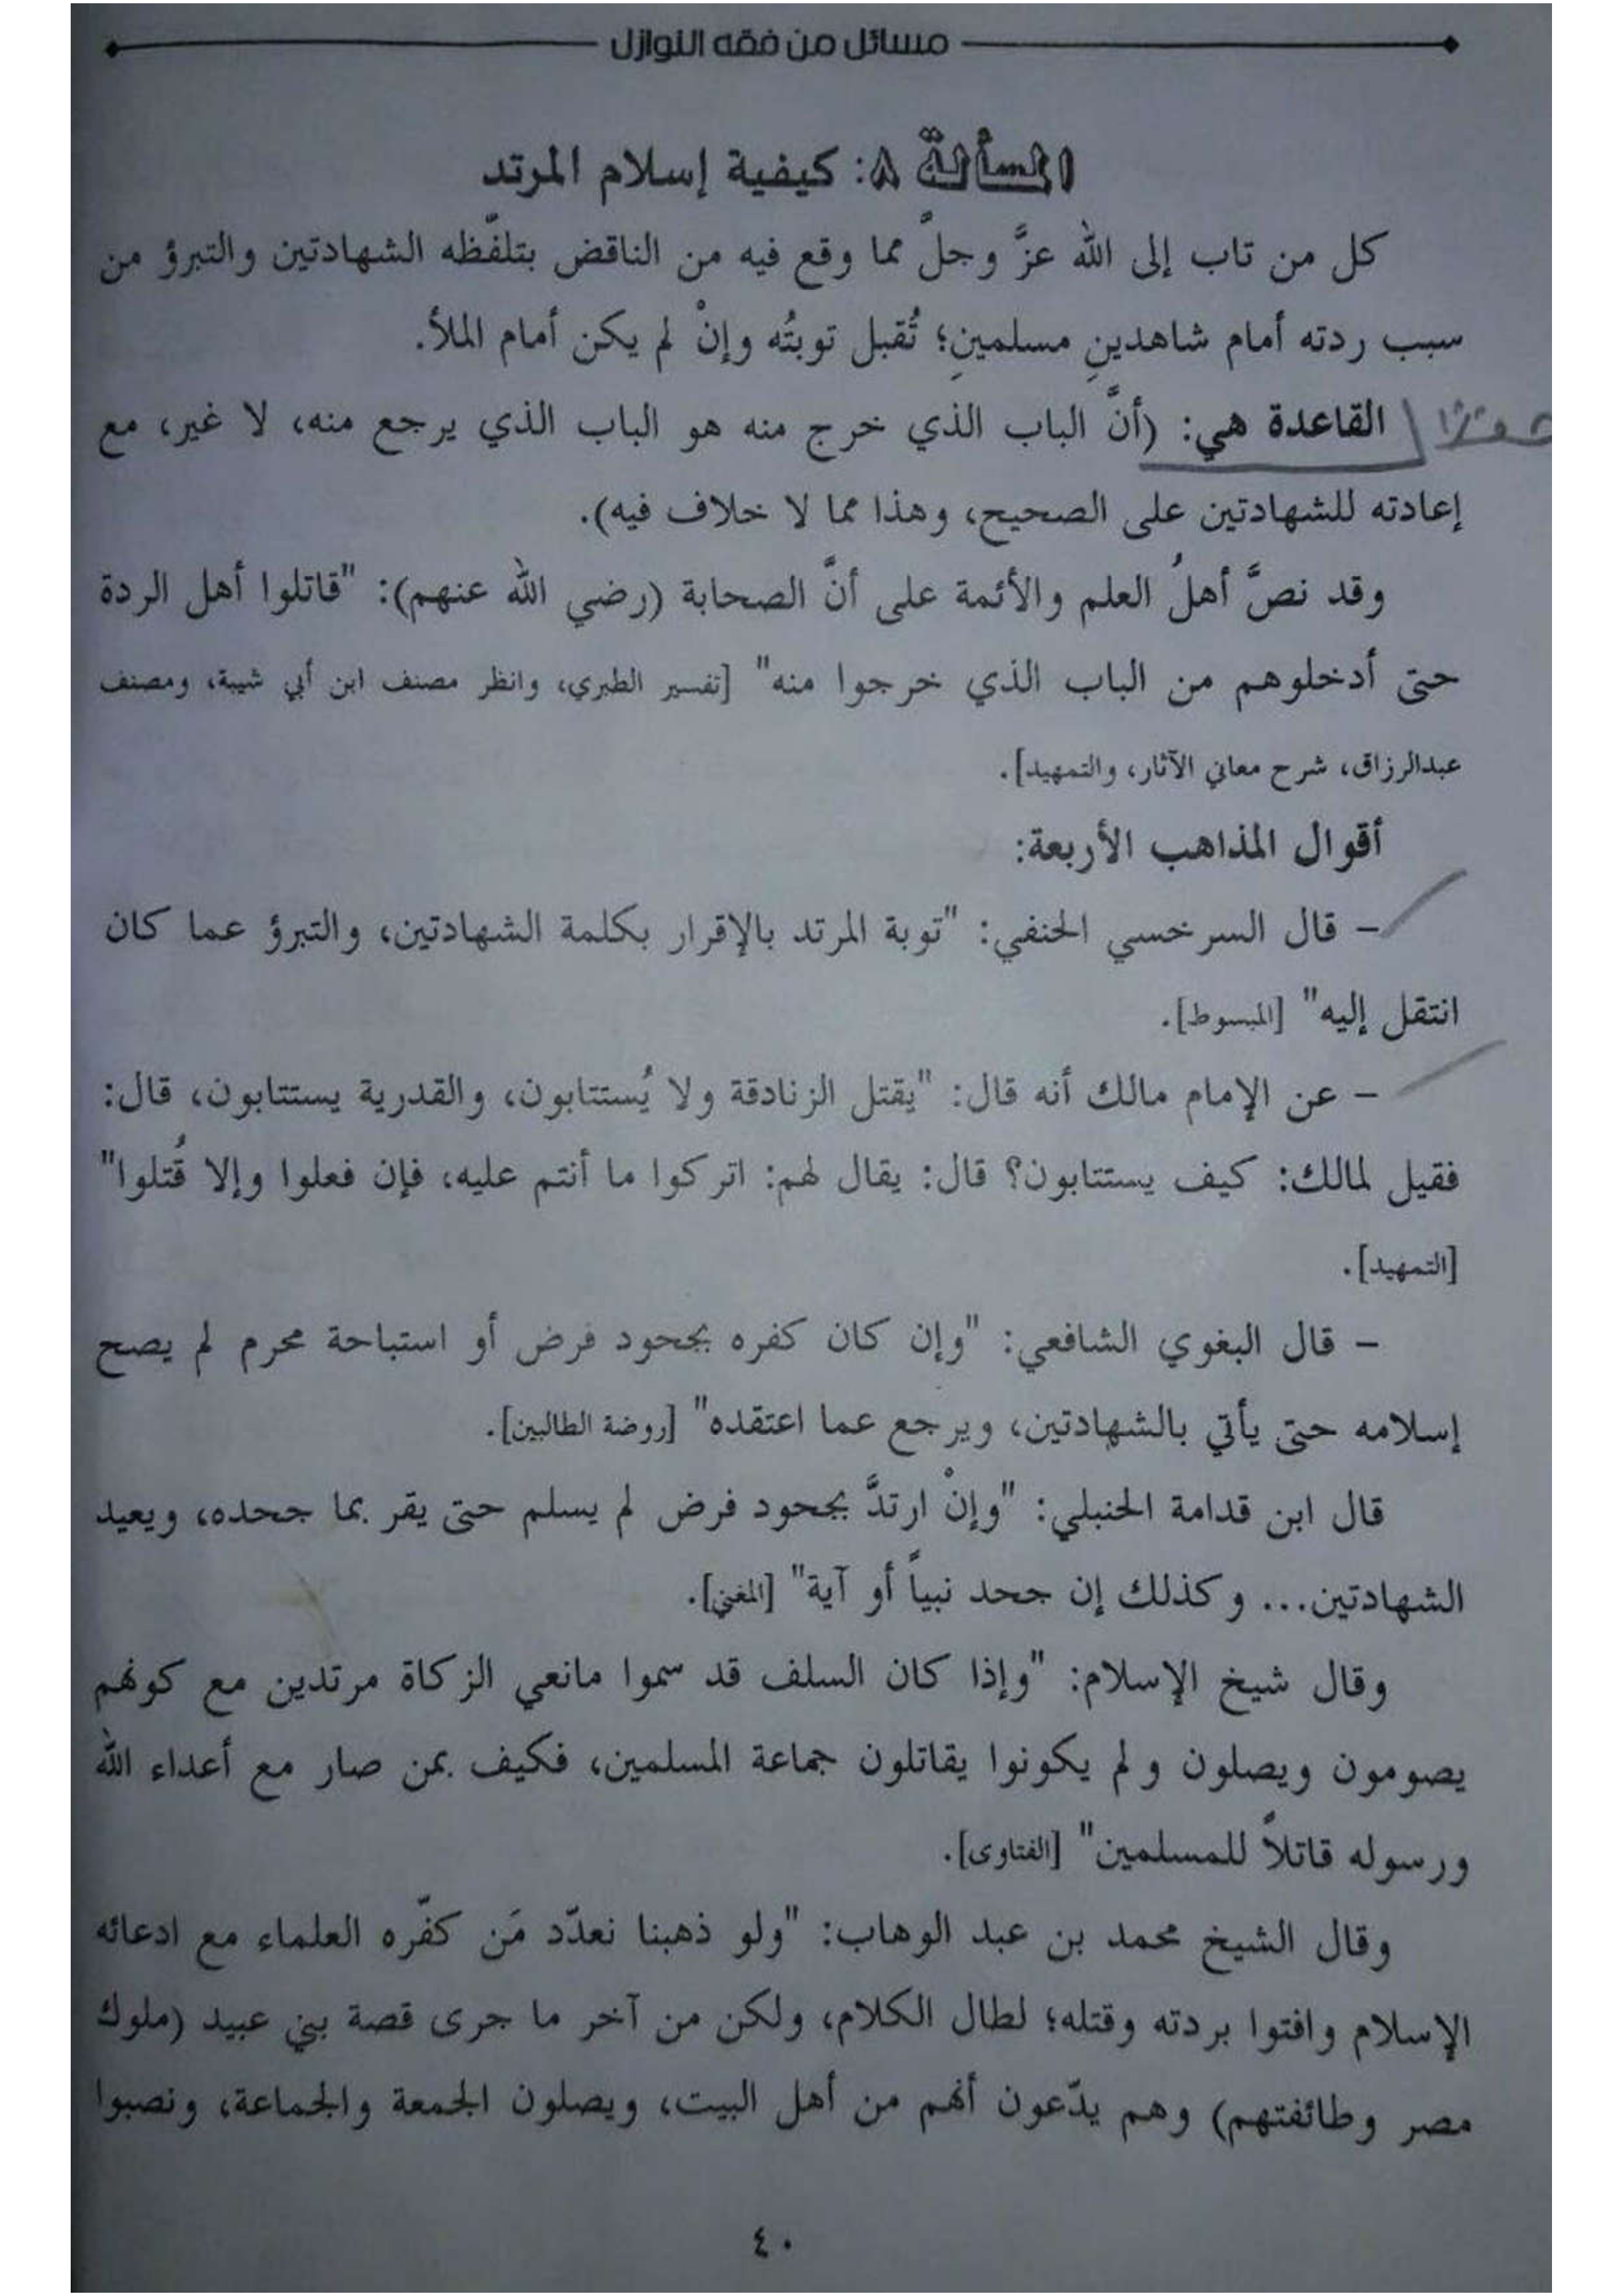 مسائل من فقه النوازل
المسألة ٨: كيفية إسلام المرتد
كل من تاب إلى الله عزَّ وجلَّ مما وقع فيه من الناقض بتلفّظه الشهادتين والتبرؤ من
سبب ردته أمام شاهدينِ مسلمينِ؛ تُقبل توبتُه وإنْ لم يكن أمام الملأ.
القاعدة هي: (أنَّ الباب الذي خرج منه هو الباب الذي يرجع منه، لا غير، مع
إعادته للشهادتين على الصحيح، وهذا مما لا خلاف فيه).
وقد نصَّ أهلُ العلم والأئمة على أنَّ الصحابة (رضي الله عنهم): "قاتلوا أهل الردة
حتى أدخلوهم من الباب الذي خرجوا منه" [تفسير الطبري، وانظر مصنف ابن أبي شيبة، ومصنف
عبدالرزاق، شرح معاني الآثار، والتمهيد].
أقوال المذاهب الأربعة:
- قال السرخسي الحنفي: "توبة المرتد بالإقرار بكلمة الشهادتين، والتبرؤ عما كان
انتقل إليه" [المبسوط].
- عن الإمام مالك أنه قال: "يقتل الزنادقة ولا يُستتابون، والقدرية يستتابون، قال:
فقيل لمالك: كيف يستتابون؟ قال: يقال لهم: اتركوا ما أنتم عليه، فإن فعلوا وإلا قُتلوا"
[التمهيد].
- قال البغوي الشافعي: "وإن كان كفره بجحود فرض أو استباحة محرم لم يصح
إسلامه حتى يأتي بالشهادتين، ويرجع عما اعتقده" [روضة الطالبين].
قال ابن قدامة الحنبلي: "وإنْ ارتدَّ بجحود فرض لم يسلم حتى يقر بما جحده، ويعيد
الشهادتين... وكذلك إن جحد نبياً أو آية" [المغني].
وقال شيخ الإسلام: "وإذا كان السلف قد سموا مانعي الزكاة مرتدين مع كونهم
يصومون ويصلون ولم يكونوا يقاتلون جماعة المسلمين، فكيف بمن صار مع أعداء الله
ورسوله قاتلاً للمسلمين" [الفتاوى].
وقال الشيخ محمد بن عبد الوهاب: "ولو ذهبنا نعدّد مَن كفّره العلماء مع ادعائه
الإسلام وافتوا بردته وقتله؛ لطال الكلام، ولكن من آخر ما جرى قصة بني عبيد (ملوك
مصر وطائفتهم) وهم يدّعون أنهم من أهل البيت، ويصلون الجمعة والجماعة، ونصبوا
٤٠